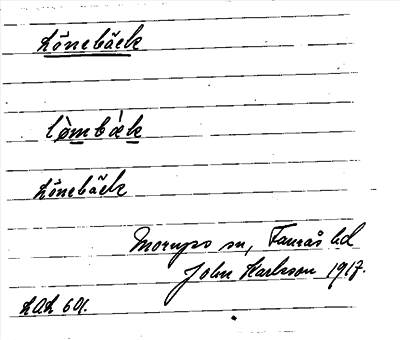 Lönebäck
lòmbàk
Lönebäck
Morups sn, Faurås hd
John Karlsson 1917.
LAL 601.